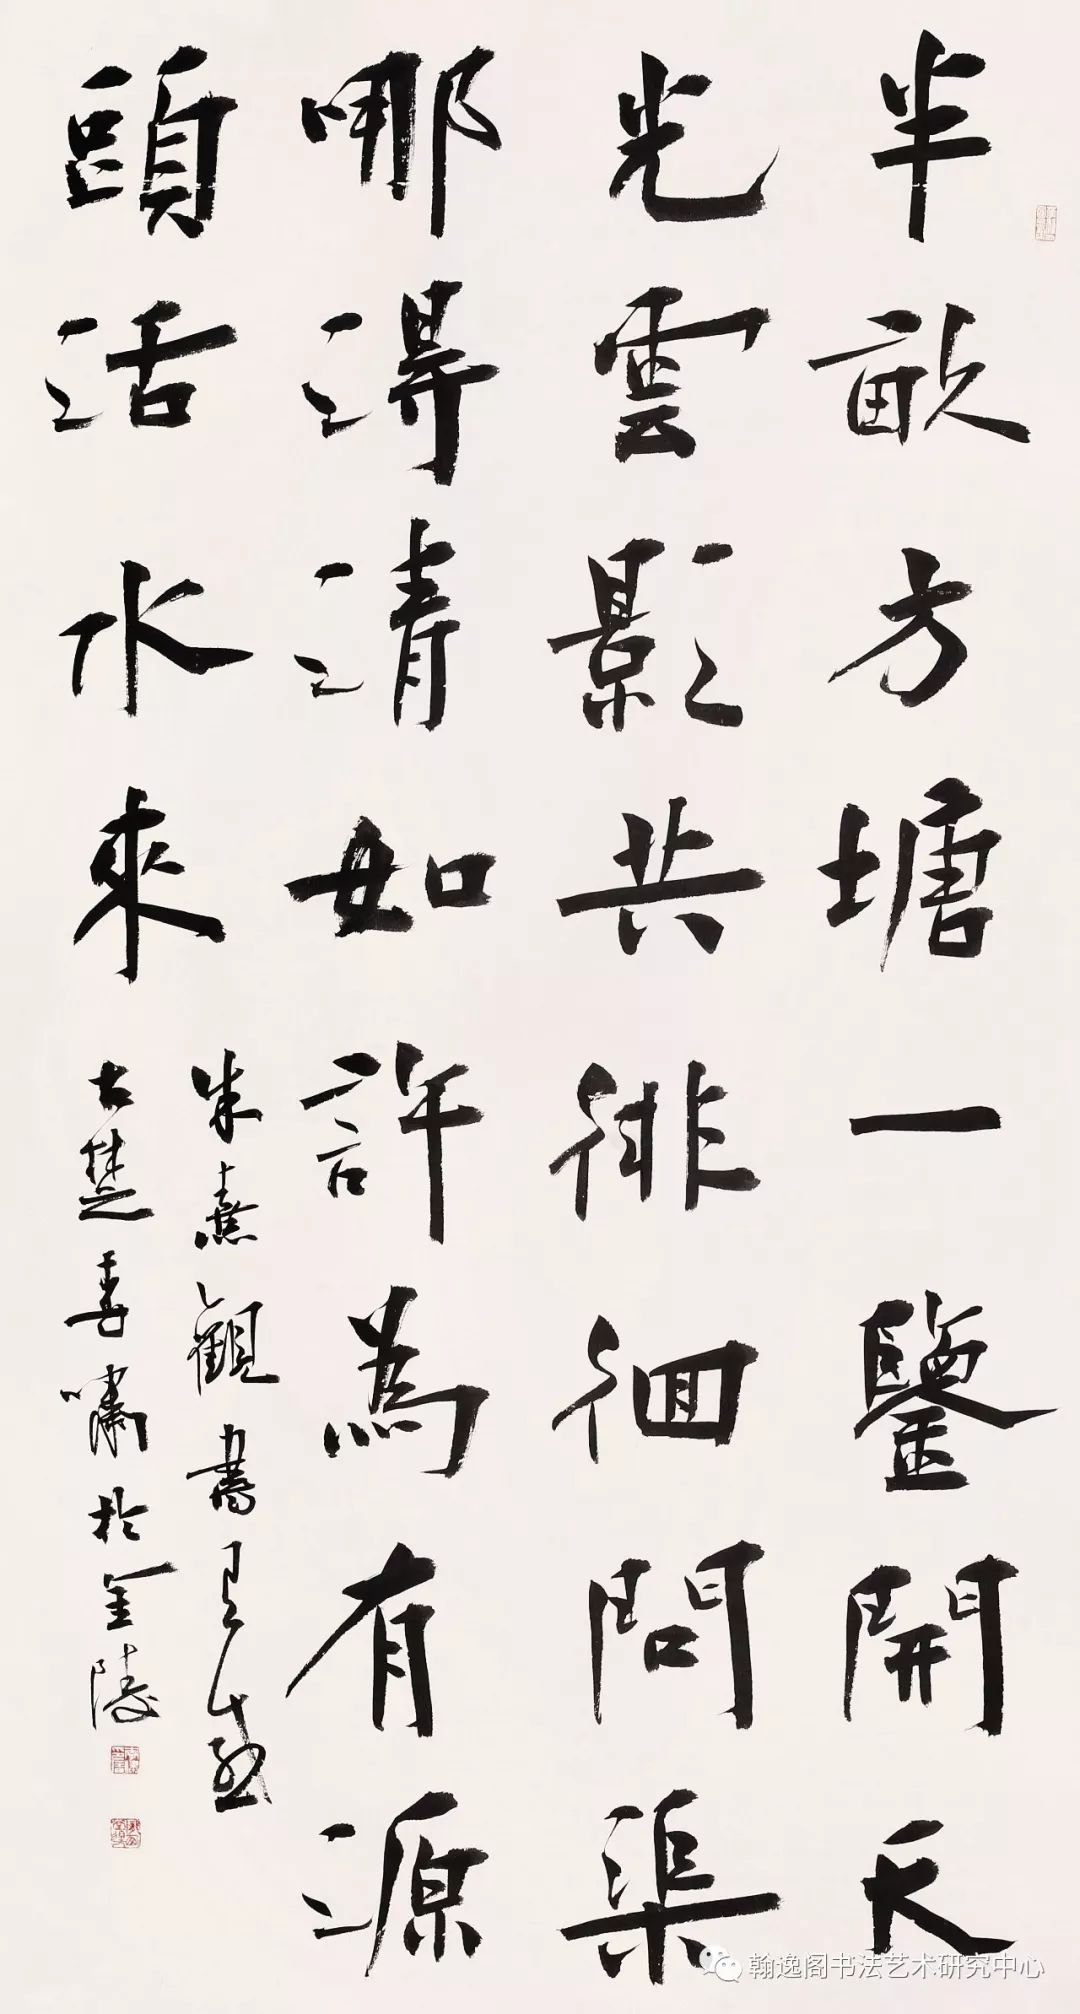 半畝方塘一鑒開天
光雲影共徘徊問渠
哪得清如許為有源
頭活水來
朱熹觀書有感
古楚喜嘯於金陵
翰逸阁书法艺术研究中心